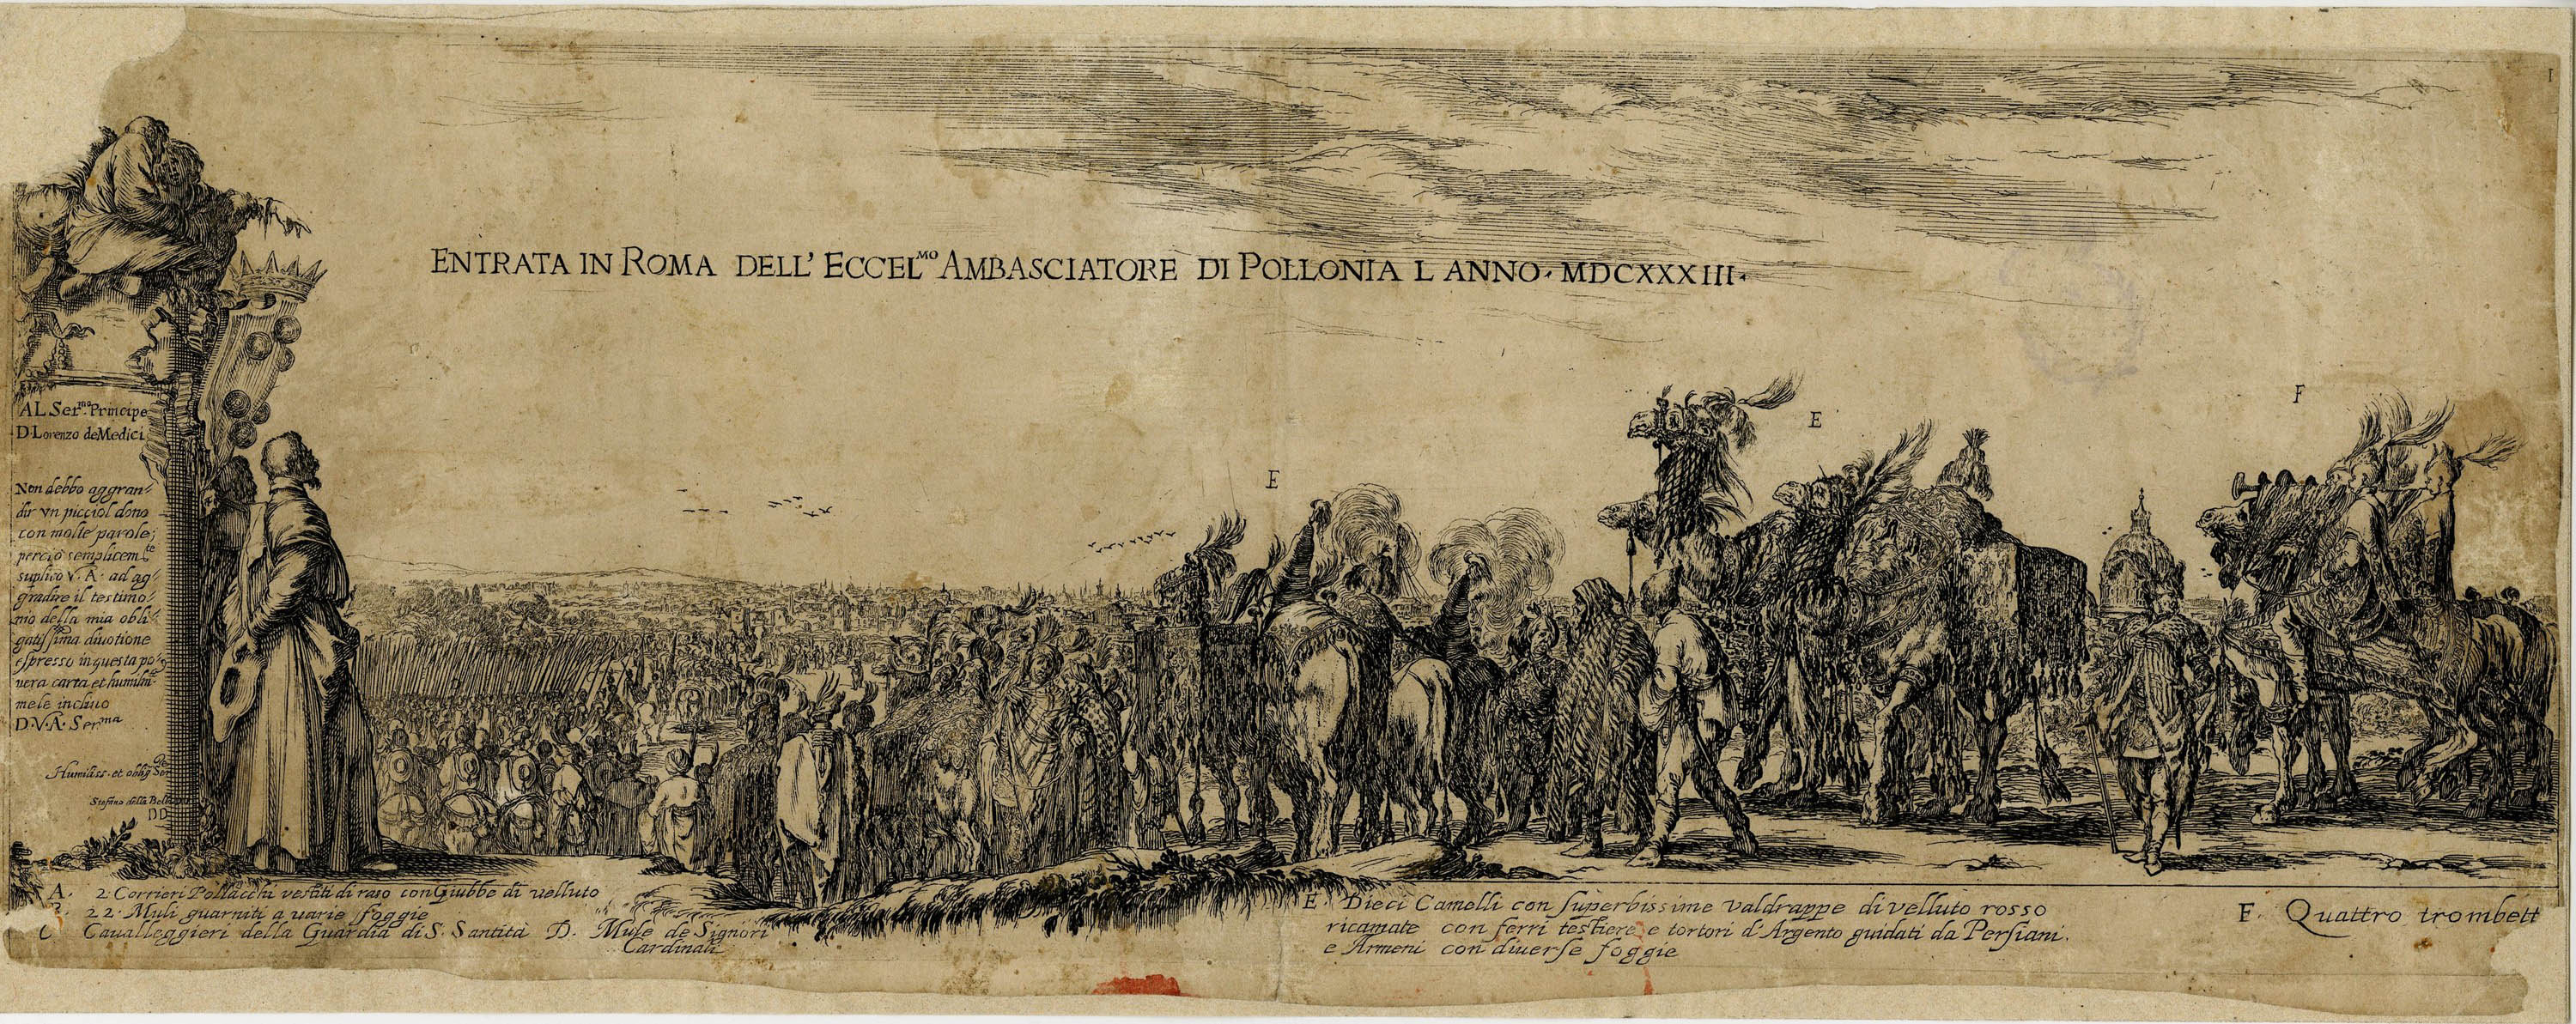 ENTRATA IN ROMA DELL' ECCEL.MO AMBASCIATORE DI POLLONIA L ANNO. MDCXXXIII.
E
E
F
AL Ser.mo Principe
D. Lorenzo de Medici
Non debbo aggran-
dir vn picciol dono
con molte parole;
perciò semplicem.te
suplico V. A. ad ag-
gradire il testimo-
nio della mia obli-
gatissima diuotione
espresso in questa po-
uera carta et humilm.te
me le inclino
D. V. A. Ser.ma
Humiliss. et oblig. Ser
Stefano della Bella
DD
A. 2 Corrieri Pollacchi vestiti di raso con Giubbe di velluto
22 Muli guarniti a uarie foggie
C Caualleggieri della Guardia di S. Santità D. Mule de Signori
Cardinali
E. Dieci Camelli con superbissime valdrappe di velluto rosso
ricamate con ferri testiere e tortori d'Argento guidati da Persiani
e Armeni con diuerse foggie
F. Quattro trombett